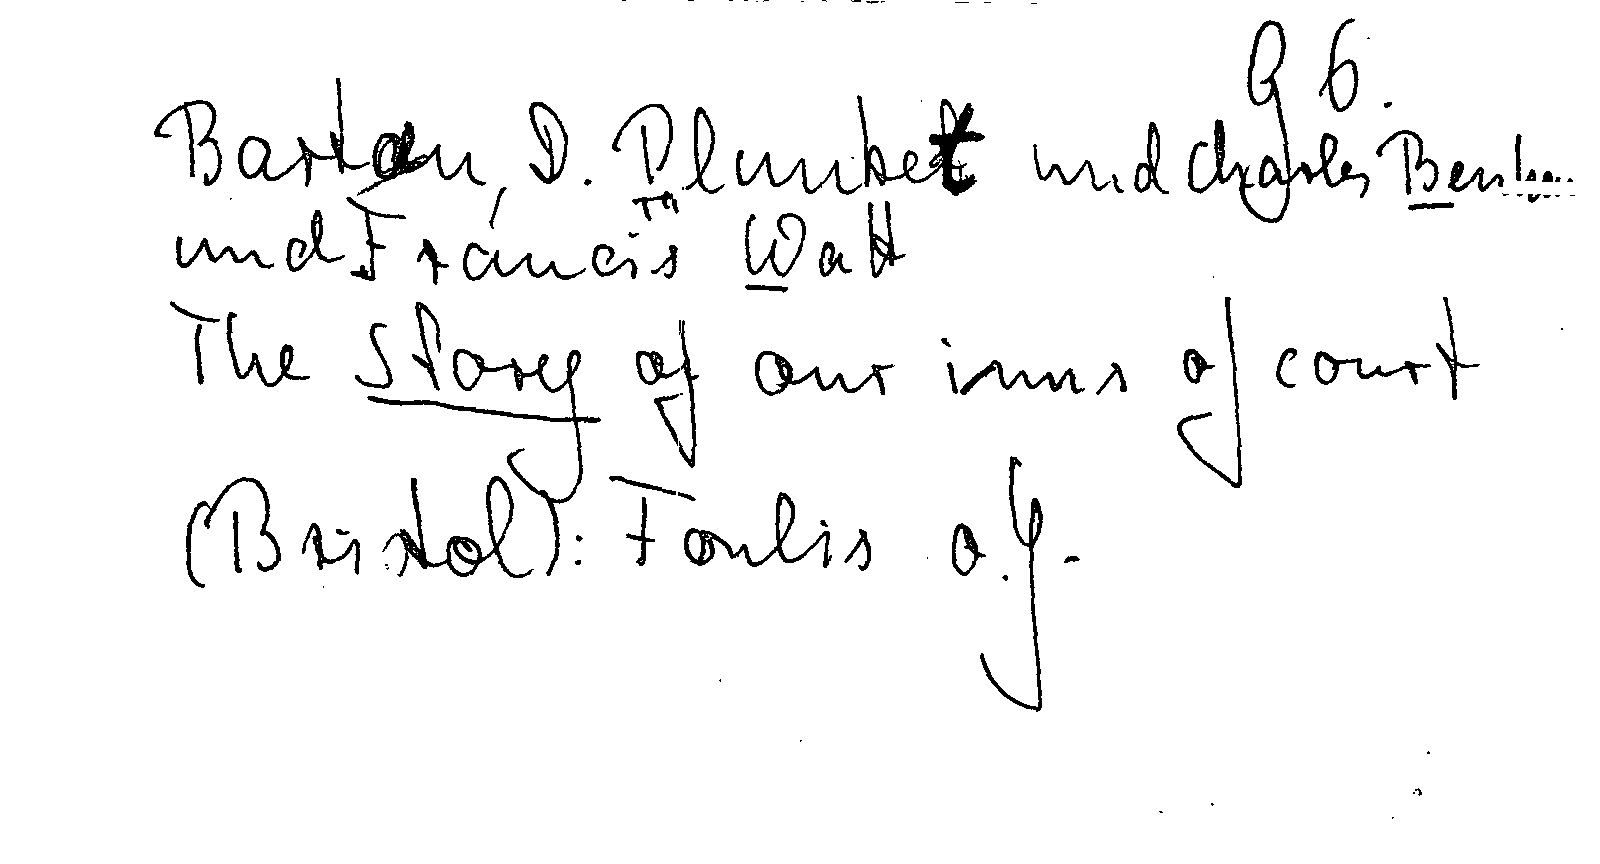 G 6.
Barton, D. Plunket und Charles Ben
und Francis Watt
The Story of our inns of court
(Bristol): Foulis o.J.